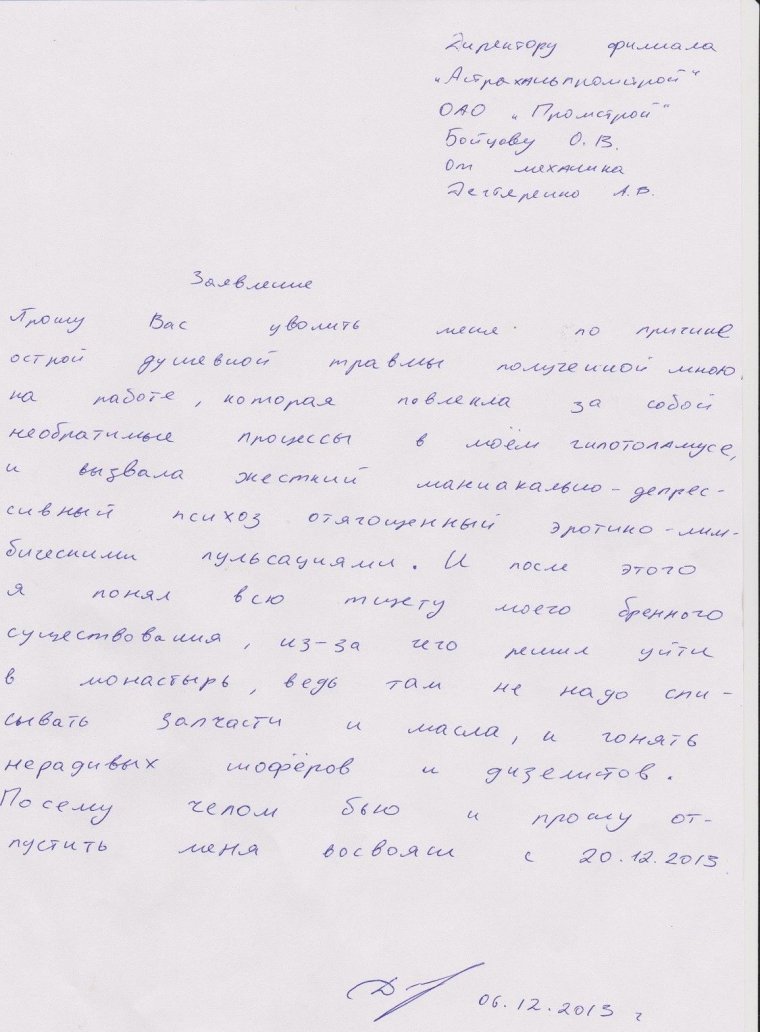 Директору филиала
"Астраханьпромстрой"
ОАО "Промстрой"
Бойцову О.В.
От механика
Дегтяренко А.В.
Заявление
Прошу Вас уволить меня по причине
острой душевной травмы полученной мною
на работе, которая повлекла за собой
необратимые процессы в моём гипотоламусе,
и вызвала жесткий маниакально-депрес-
сивный психоз отягощенный эротико-лим-
бическими пульсациями. И после этого
я понял всю тщету моего бренного
существования, из-за чего решил уйти
в монастырь, ведь там не надо спи-
сывать запчасти и масла, и гонять
нерадивых шофёров и дизелистов.
Посему челом бью и прошу от-
пустить меня восвояси с 20.12.2013
06.12.2013 г